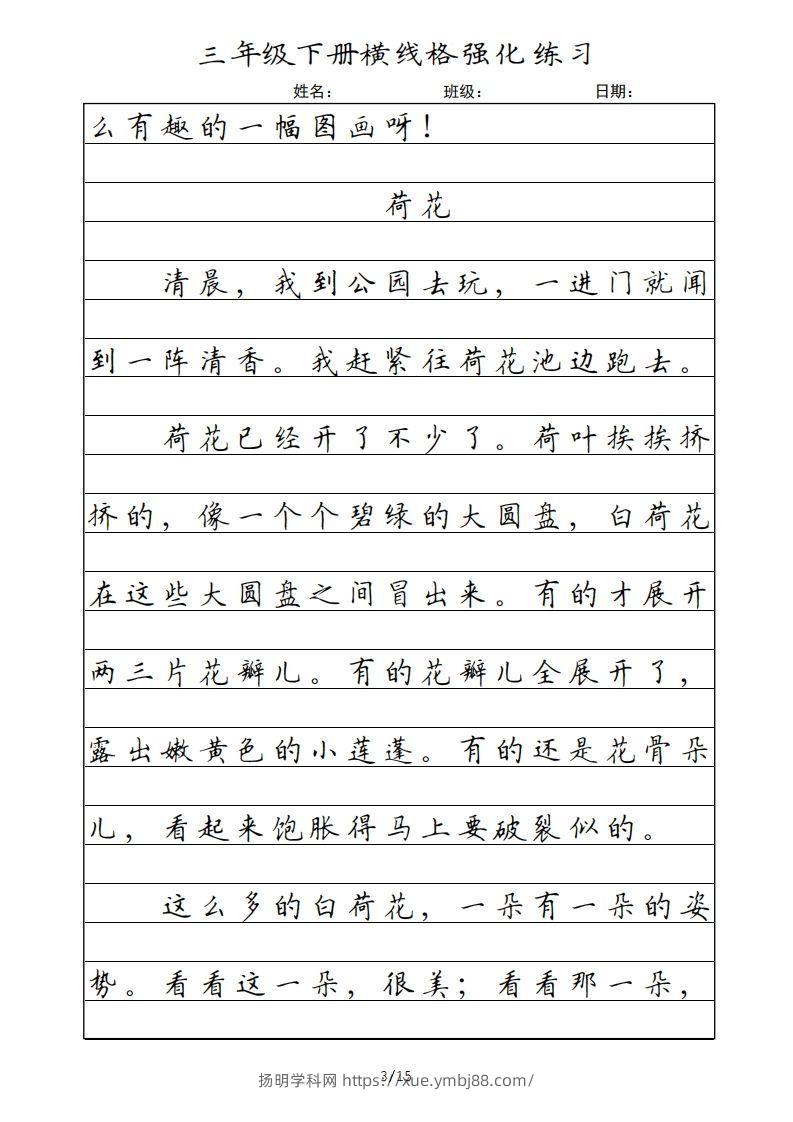 三年级下册横线格强化练习
姓名： 班级： 日期：
么有趣的一幅图画呀！
荷花
清晨，我到公园去玩，一进门就闻
到一阵清香。我赶紧往荷花池边跑去。
荷花已经开了不少了。荷叶挨挨挤
挤的，像一个个碧绿的大圆盘，白荷花
在这些大圆盘之间冒出来。有的才展开
两三片花瓣儿。有的花瓣儿全展开了，
露出嫩黄色的小莲蓬。有的还是花骨朵
儿，看起来饱胀得马上要破裂似的。
这么多的白荷花，一朵有一朵的姿
势。看看这一朵，很美；看看那一朵，
3/15
扬明学科网 https://xue.ymbj88.com/